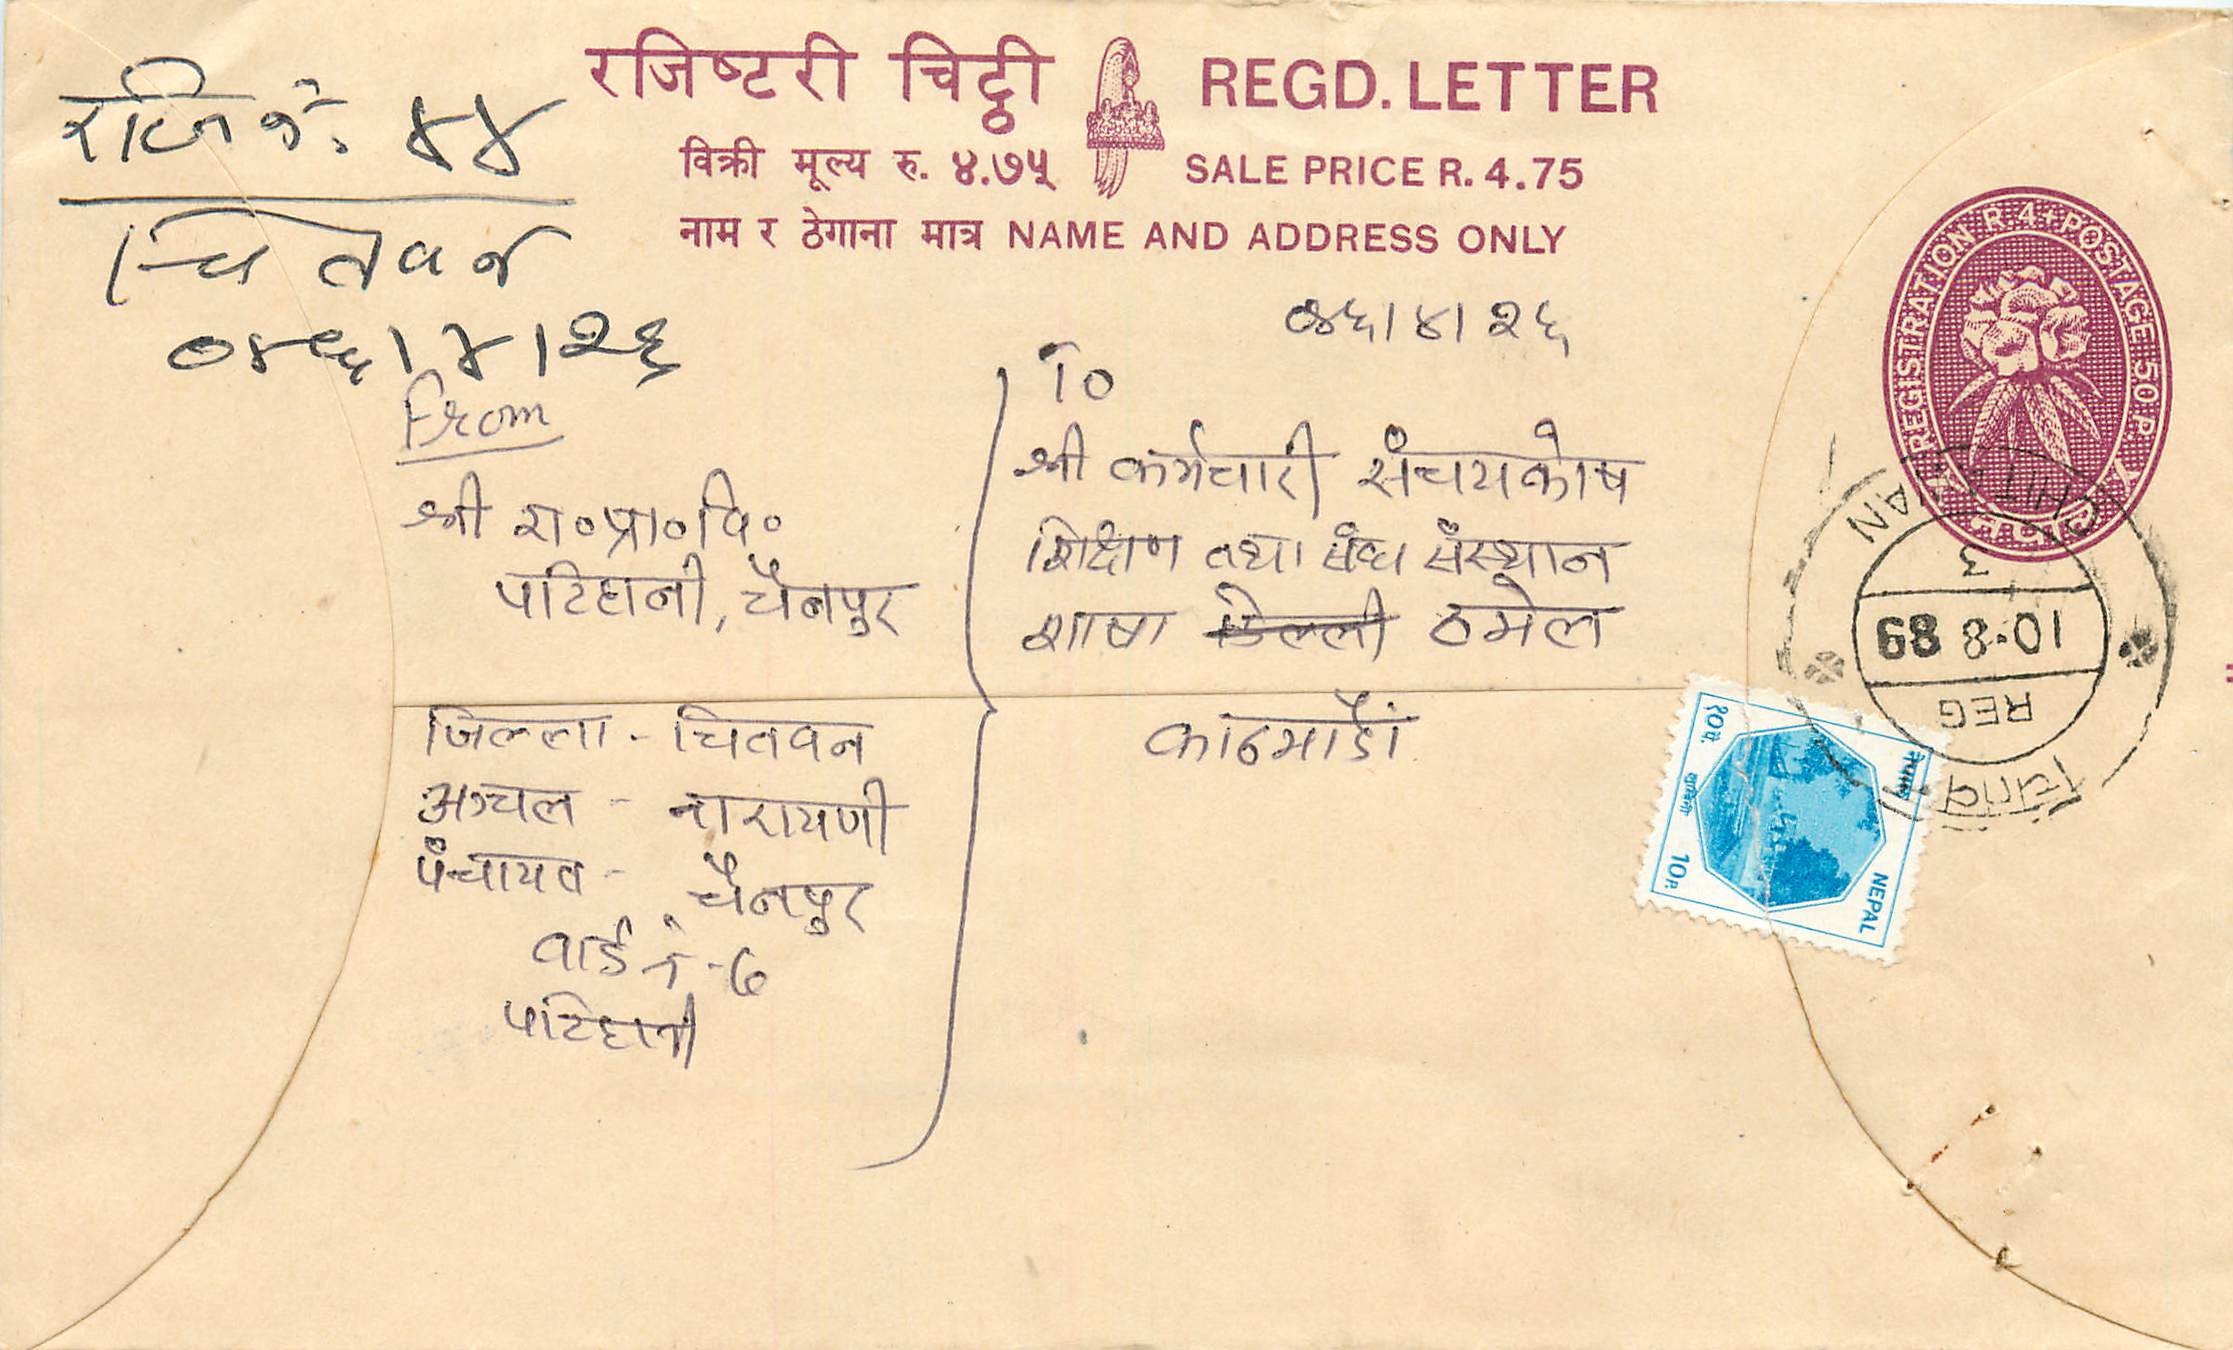 रजिष्टरी चिट्ठी REGD. LETTER
विक्री मूल्य रु. ४.७५ SALE PRICE R. 4.75
नाम र ठेगाना मात्र NAME AND ADDRESS ONLY
रजि नं. ४४
चितवन
०४६।४।२६
REGISTRATION R.4+POSTAGE 50 P.
नेपाल
०४६।४।२६
From
श्री रा॰प्रा॰वि॰
पटिहानी, चैनपुर
जिल्ला - चितवन
अञ्चल - नारायणी
पंचायत - चैनपुर
वार्ड नं - ७
पटिहानी
To
श्री कर्मचारी संचयकोष
शिक्षण तथा संघ संस्थान
शाषा डिल्ली ठमेल
काठमाडौं
CHITAWAN
3
10-8 89
REG
चितवन
नेपाल
१०पै.
NEPAL
10P.